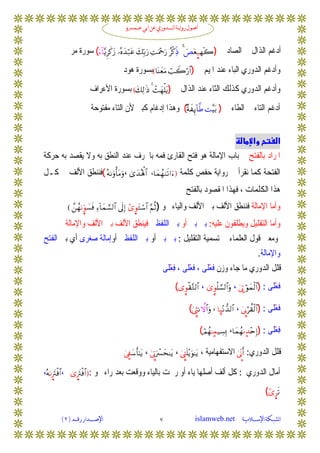 أصول رواية الدوري عن أبي عمرو
أدغم الذال الصاد (كٓهيعٓصٓ ذِكْرُ رَحْمَتِ رَبِّكَ عَبْدَهُ زَكَرِيَّآءَ) سورة مر
وأدغم الدوري الباء عند ا يم (ٱرْكَب مَّعَنَا) بسورة هود
وأدغم الدوري كذلك الثاء عند الذال (يَلْهَث ذَّٰلِكَ) بسورة الأعراف
أدغم التاء الطاء (بَيَّت طَّآئِفَةٌ) وهذا إدغام كبـ لأن التاء مفتوحة
الفتح والإمالة
ا راد بالفتح باب الإمالة هو فتح القارئ فمه با رف عند النطق به ولا يقصد به حركة
الفتحة كما نقرأ رواية حفص كلمة (ءَاتَىٰهُمَا، ٱلْهُدَىٰ، وَمَأْوَىٰهُ) فننطق الألف كـل
هذا الكلمات ، فهذا ا قصود بالفتح
وأما الإمالة فننطق الألف بـ الألف والياء و (ثُمَّ ٱسْتَوَىٰٓ إِلَى ٱلسَّمَآءِ فَسَوَّىٰهُنَّ)
وأما التقليل ويطلقون عليه: بـ بـ أو بـ اللفظ فينطق الألف بـ الألف والإمالة
ومعـ قول العلماء تسمية التقليل : بـ بـ أو بـ اللفظ أوإمالة صغرى أي بـ الفتح
والإمالة.
قلل الدوري ما جاء وزن فعلى ، فعلى ، فعلى
فعلى : (ٱلْمَوْتَىٰ ، وَٱلسَّلْوَىٰ ، ٱلتَّقْوَىٰ)
فعلى : (ٱلْقُرْبَىٰ ، ٱلدُّنْيَا ، وَٱلْأُنثَىٰ)
فعلى : (إِحْدَىٰهُمَا، بِسِيمَىٰهُمْ)
قلل الدوري: أَنَّىٰ الاستفهامية ، يَٰوَيْلَتَىٰ ، يَٰحَسْرَتَىٰ ، يَٰٓأَسَفَىٰ
أمال الدوري : كل ألف أصلها ياء أو ر ت بالياء ووقعت بعد راء و :(ٱفْتَرَىٰ، ٱفْتَرَىٰهُ،
تَرَىٰ)
الشبكة الإسلامية islamweb.net ٧ الإصدار رقم (٢)